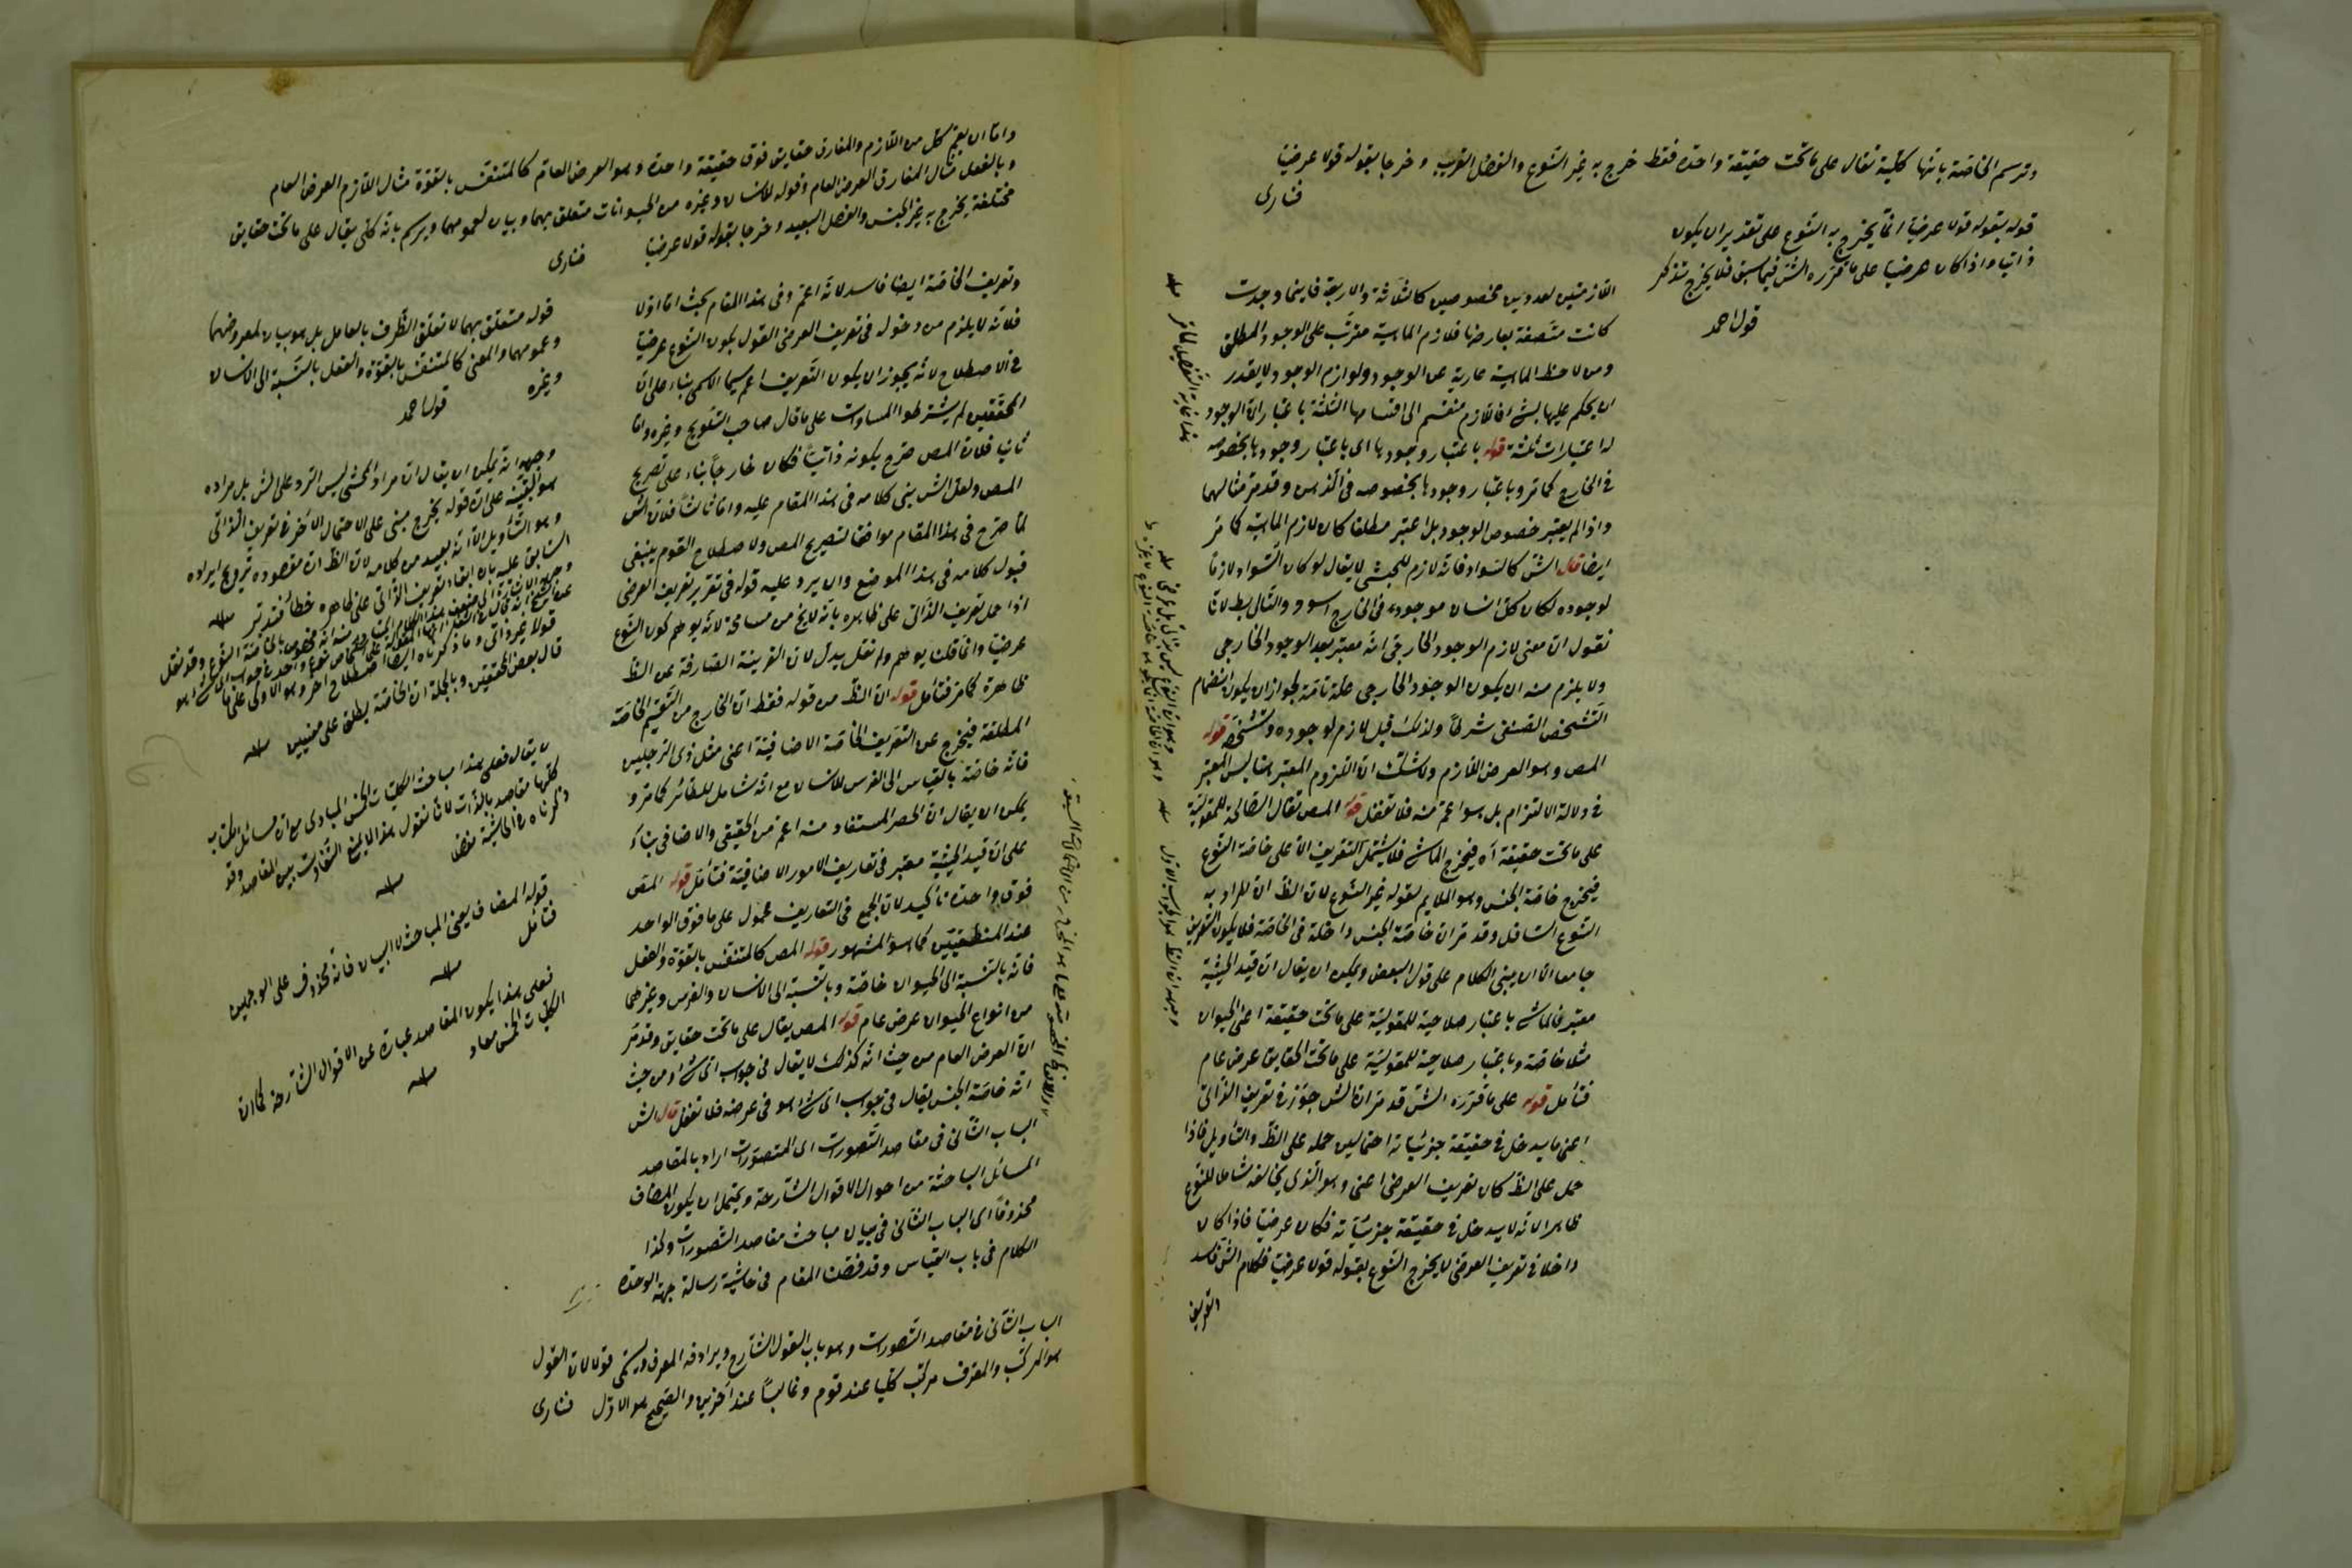 وترسم الخاصة بانها كلية تقال على ما تحت حقيقة واحدة فقط خرج به غير النوع والفصل القريب وخرجا بقوله قولا عرضيا
فنارى
قوله بقوله قولا عرضيا انما يخرج به النوع على تقدير ان يكون
ذاتيا واذا كان عرضيا على ما قرره الش فيما سبق فلا يخرج فتذكر
قول احمد
اللازمتين لعددين مخصوصين كالثلاثة والاربعة فاينما وجدت
كانت متصفة بعارضها فلازم الماهية مترتب على الوجود المطلق
ومن لاحظ الماهية عارية عن الوجود ولوازم الوجود لا يقدر
ان يحكم عليها بشئ فاللازم منقسم الى اقسامها الثلثة باعتبار ان الوجود
له اعتبارات ثلثة قوله باعتبار وجودها اى باعتبار وجودها بخصوصه
فى الخارج كما مر وباعتبار وجودها بخصوصه فى الذهن وقد مر مثالهما
واذا لم يعتبر خصوص الوجود بل اعتبر مطلقا كان لازم الماهية كما مر
ايضا قال الش كالسواد فانه لازم للحبشى لا يقال لو كان السواد لازما
لوجوده لكان كل انسان موجود فى الخارج اسود والتالى بط لانا
نقول ان معنى لازم الوجود الخارجى انه معتبر بعد الوجود الخارجى
ولا يلزم منه ان يكون الوجود الخارجى علة تامة لجواز ان يكون انضمام
التشخص الصنفى شرطا ولذلك قيل لازم لوجوده وتشخصه قوله
المص وهو العرض اللازم ولا شك ان اللزوم المعتبر هنا ليس المعتبر
فى دلالة الالتزام بل هو اعم منه فلا تغفل قوله المص تقال الصالحة للمقولية
على ما تحت حقيقة اه فيخرج الماشى فلا يشتمل التعريف الا على خاصة النوع
فيخرج خاصة الجنس وهو الملايم لقوله غير النوع لان الظ ان المراد به
النوع السافل وقد مر ان خاصة الجنس داخلة فى الخاصة فلا يكون التعريف
جامعا الا ان يبنى الكلام على قول البعض ويمكن ان يقال ان قيد الحيثية
معتبر فالماشى باعتبار صلاحية للمقولية على ما تحت حقيقة اعنى الحيوان
مثلا خاصة وباعتبار صلاحية للمقولية على ما تحت الحقايق عرض عام
فتأمل قوله على ما قرره الش قد مر ان الش جوز فى تعريف الذاتى
اعنى ما يدخل فى حقيقة جزئياته احتمالين حمله على الظ والتأويل فاذا
حمل على الظ كان تعريف العرضى اعنى وهو الذى يخالفه شاملا للنوع
ظاهرا لانه لا يدخل فى حقيقة جزئياته فكان عرضيا فاذا كان
داخلا فى تعريف العرضى لا يخرج النوع بقوله قولا عرضيا فكلام الش فاسد
وتعريف
هذا غاية التفصيل لما مر منه
واما ان يعم كل من اللازم والمفارق حقايق فوق حقيقة واحدة وهو العرض العام كالمتنفس بالقوة مثال اللازم العرض العام
وبالفعل مثال المفارق العرض العام وقوله للانسان وغيره من الحيوانات متعلق بهما وبيان لعمومهما ويرسم بانه كلى يقال على ما تحت حقايق
مختلفة يخرج به غير الجنس والفصل البعيد وخرجا بقوله قولا عرضيا
فنارى
وتعريف الخاصة ايضا فاسد لانه اعم وفى هذا المقام بحث اما اولا
فلانه لا يلزم من دخوله فى تعريف العرضى القول بكون النوع عرضيا
فى الاصطلاح لانه يجوز ان يكون التعريف اعم سيما الاسمى بناء على ان
المحققين لم يشترطوا المساوات على ما قال صاحب التلويح وغيره واما
ثانيا فلان المص صرح بكونه ذاتيا فكان خارجا بناء على تصريح
المص ولعل الش بنى كلامه فى هذا المقام عليه واما ثالثا فلان الش
لما صرح فى هذا المقام موافقا لتصريح المص ولاصطلاح القوم ينبغى
قبول كلامه فى هذا الموضع وان يرد عليه قوله فى تقرير تعريف العرضى
اذا حمل تعريف الذاتى على ظاهره بانه لا يخ من مسامحة لانه يوهم كون النوع
عرضيا وانما قلنا يوهم ولم نقل يدل لان القرينة الصارفة عن الظ
ظاهرة كما مر فتأمل قوله ان الظ من قوله فقط ان الخارج من التقسيم الخاصة
المطلقة فيخرج عن التعريف الخاصة الاضافية اعنى مثل ذى الرجلين
فانه خاصة بالقياس الى الفرس للانسان مع انه شامل للطائر كما مر و
يمكن ان يقال ان الحصر المستفاد منه اعم من الحقيقى والاضافى بناء
على ان قيد الحيثية معتبر فى تعاريف الامور الاضافية فتأمل قوله المص
فوق واحدة تأكيد لان الجمع فى التعاريف محمول على ما فوق الواحد
عند المنطقيين كما هو المشهور قوله المص كالمتنفس بالقوة والفعل
فانه بالنسبة الى الحيوان خاصة وبالنسبة الى الانسان والفرس وغيرهما
من انواع الحيوان عرض عام قوله المص يقال على ما تحت حقايق وقد مر
ان العرض العام من حيث انه كذلك لا يقال فى جواب اى شئ ومن حيث
انه خاصة الجنس يقال فى جواب اى شئ هو فى عرضه فلا تغفل قال الش
الباب الثانى فى مقاصد التصورات اى المتصورات اراد بالمقاصد
المسائل الباحثة من احوال الاقوال الشارحة ويحتمل ان يكون المضاف
محذوفا اى الباب الثانى فى بيان مباحث مقاصد التصورات وكذا
الكلام فى باب القياس وقد فصلنا المقام فى حاشية رسالة جهة الوحدة
الباب الثانى فى مقاصد التصورات وهو باب القول الشارح ويرادفه المعرف ويسمى قولا لان القول
هو المركب والمعرف مركب كليا عند قوم وغالبا عند آخرين والصحيح هو الاول فنارى
قوله متعلق بهما لا تعلق الظرف بالعامل بل هو بيان لمعروضهما
وعمومهما والمعنى كالمتنفس بالقوة والفعل بالنسبة الى الانسان
وغيره
قول احمد
وجهه انه يمكن ان يقال ان مراد المحشى ليس الرد على الش بل مراده
هو التنبيه على ان قوله يخرج مبنى على الاحتمال الآخر فى تعريف الذاتى
وهو التأويل الا انه بعيد من كلامه لان الظ ان مقصوده ترويج ايراده
السابق عليه بان ابقاء تعريف الذاتى على ظاهره خطأ فتدبر منه
قال بعض المحققين وبالجملة ان الخاصة يطلق على معنيين منه
لا يقال فعلى هذا مباحث الكليات الخمس المبادى مع ان مسائل الكتاب
كلها مقاصد بالذات لانا نقول هذا لا يمنع التفاوت بين المقاصد وقد
ذكرناه فى الحاشية مفصلا منه
قوله المضاف يعنى المباحث لا البيان فانه محذوف على الوجهين
فتأمل منه
فعلى هذا يكون المقاصد عبارة عن الاقوال الشارحة كما ان
الكليات الخمس مباد منه